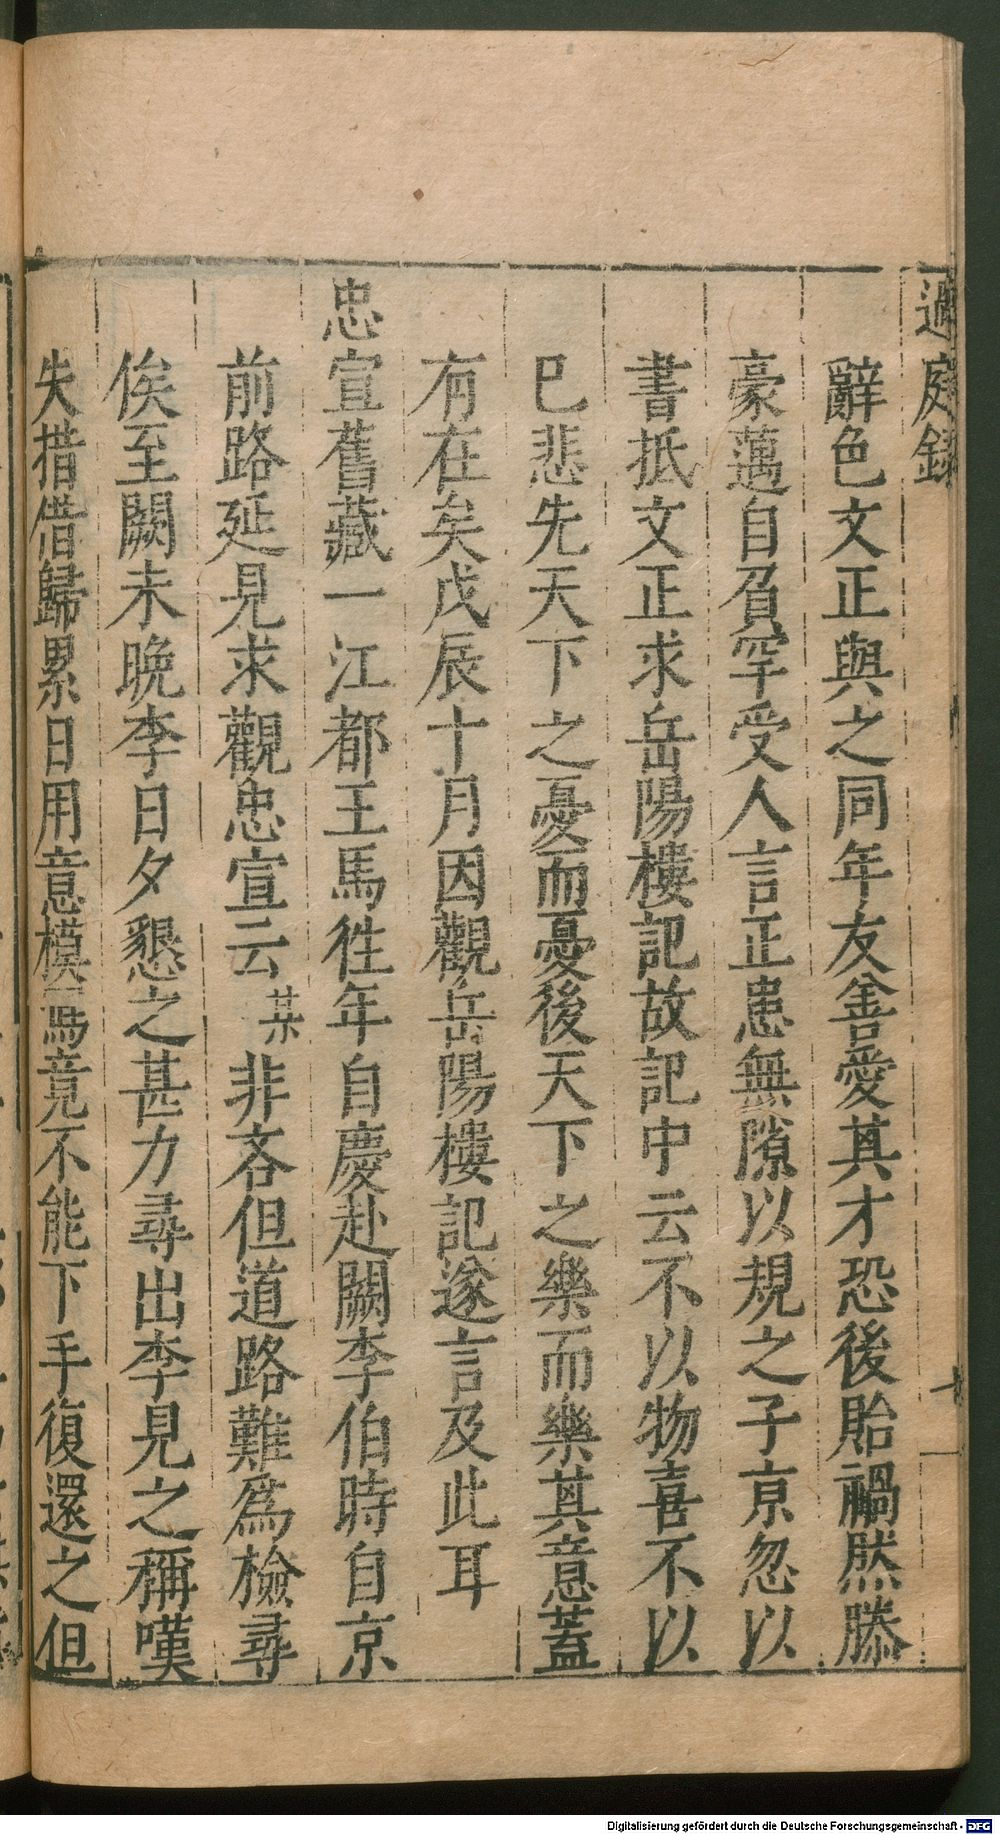 過庭錄
辭色文正與之同年友善愛其才恐後貽禍然滕
豪邁自負罕受人言正患無隙以規之子京忽以
書抵文正求岳陽樓記故記中云不以物喜不以
已悲先天下之憂而憂後天下之樂而樂其意蓋
有在矣戊辰十月因觀岳陽樓記遂言及此耳
忠宣舊藏一江都王馬徃年自慶赴闕李伯時自京
前路延見求觀忠宣云某非吝但道路難為檢尋
俟至闕未晩李日夕懇之甚力尋出李見之稱嘆
失措借歸累日用意模寫竟不能下手復還之但
Digitalisierung gefördert durch die Deutsche Forschungsgemeinschaft - DFG